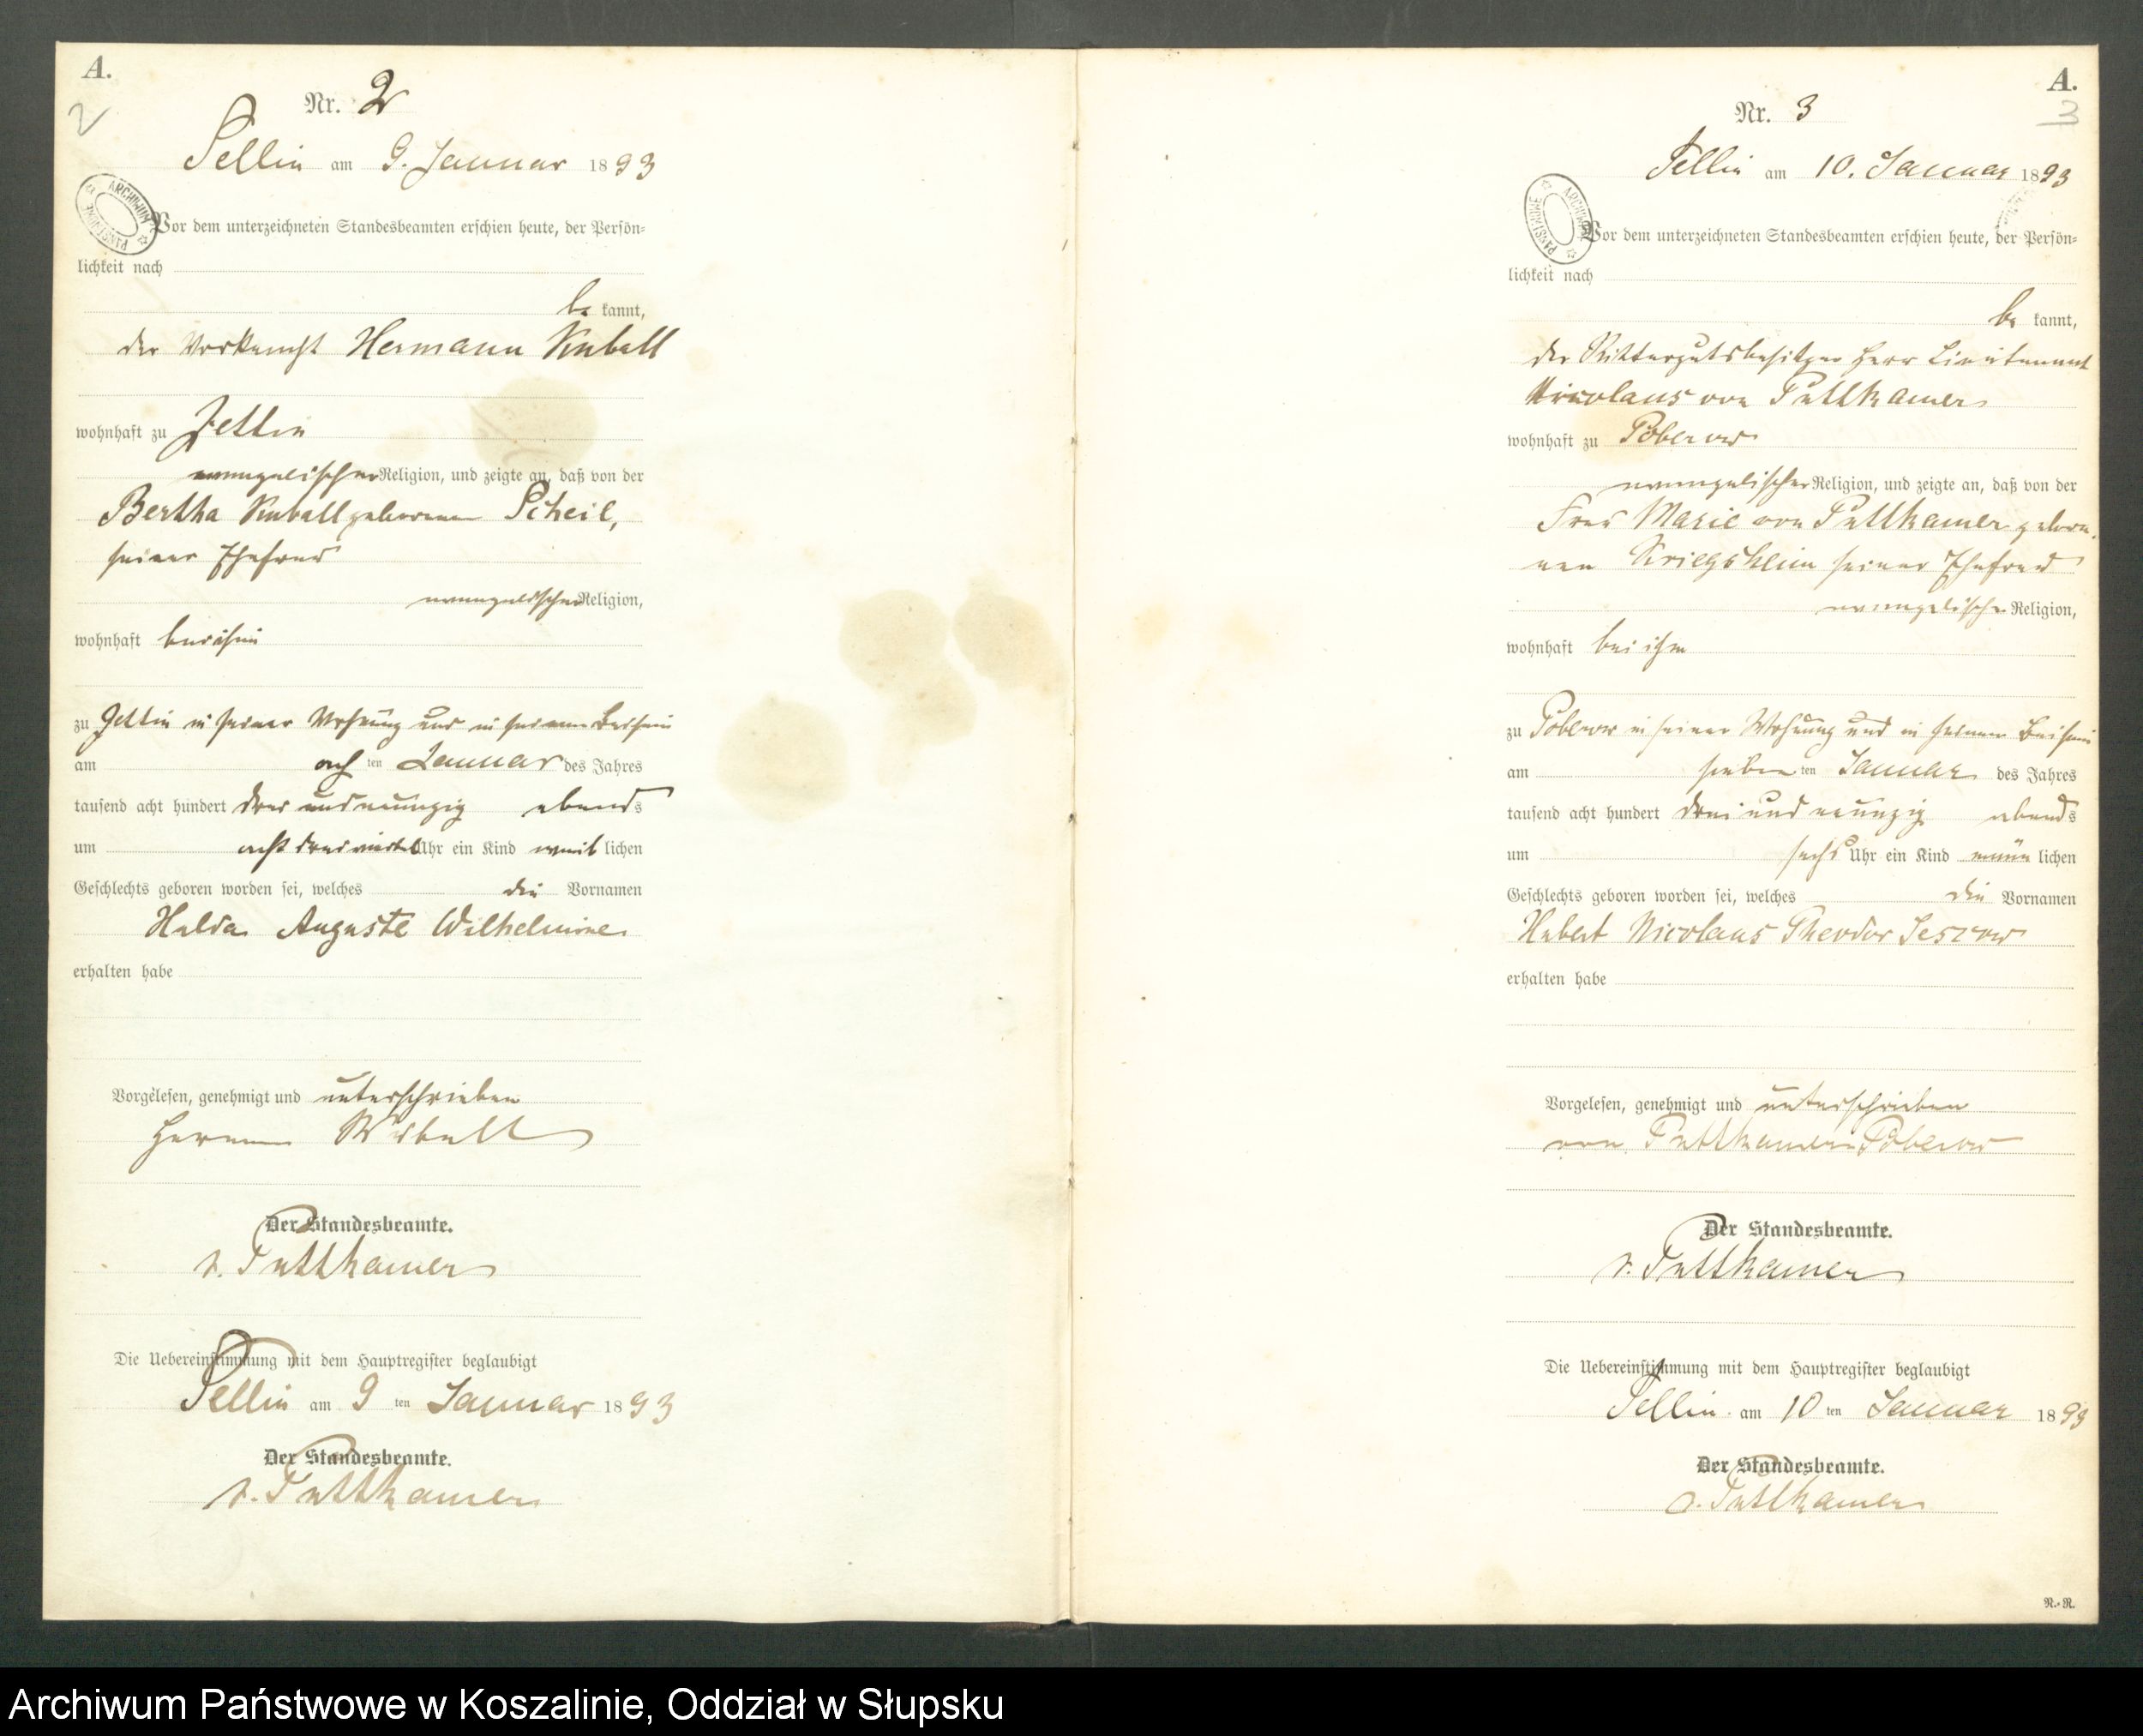 A.
2
Nr. 2
Sellin am 9. Januar 1893
Vor dem unterzeichneten Standesbeamten erschien heute, der Persön-
lichkeit nach
be kannt,
der Hermann Kuball
wohnhaft zu Jettin
evangelischer Religion, und zeigte an, daß von der
Bertha Kuball geborenen Scheil,
seiner Ehefrau
evangelischer Religion,
wohnhaft bei ihm
zu Jettin in seiner Wohnung und in seinem Beisein
am acht ten Januar des Jahres
tausend acht hundert drei und neunzig abends
um acht drei viertel Uhr ein Kind weib lichen
Geschlechts geboren worden sei, welches die Vornamen
Hulda Auguste Wilhelmine
erhalten habe
Vorgelesen, genehmigt und unterschrieben
Hermann Kuball
Der Standesbeamte.
v. Puttkamer
Die Uebereinstimmung mit dem Hauptregister beglaubigt
Sellin am 9 ten Januar 1893
Der Standesbeamte.
v. Puttkamer
ARCHIWUM PAŃSTWOWE
A.
3
Nr. 3
Sellin am 10. Januar 1893
Vor dem unterzeichneten Standesbeamten erschien heute, der Persön-
lichkeit nach
be kannt,
der Rittergutsbesitzer Herr Lieutenant
Nicolaus von Puttkamer
wohnhaft zu Poberow
evangelischer Religion, und zeigte an, daß von der
Frau Marie von Puttkamer gebore-
nen Kriegsheim seiner Ehefrau
evangelischer Religion,
wohnhaft bei ihm
zu Poberow in seiner Wohnung und in seinem Beisein
am sieben ten Januar des Jahres
tausend acht hundert drei und neunzig abends
um sechs Uhr ein Kind männ lichen
Geschlechts geboren worden sei, welches die Vornamen
Hubert Nicolaus Theodor Jescow
erhalten habe
Vorgelesen, genehmigt und unterschrieben
von Puttkamer Poberow
Der Standesbeamte.
v. Puttkamer
Die Uebereinstimmung mit dem Hauptregister beglaubigt
Sellin am 10 ten Januar 1893
Der Standesbeamte.
v. Puttkamer
R.-R.
ARCHIWUM PAŃSTWOWE
Archiwum Państwowe w Koszalinie, Oddział w Słupsku